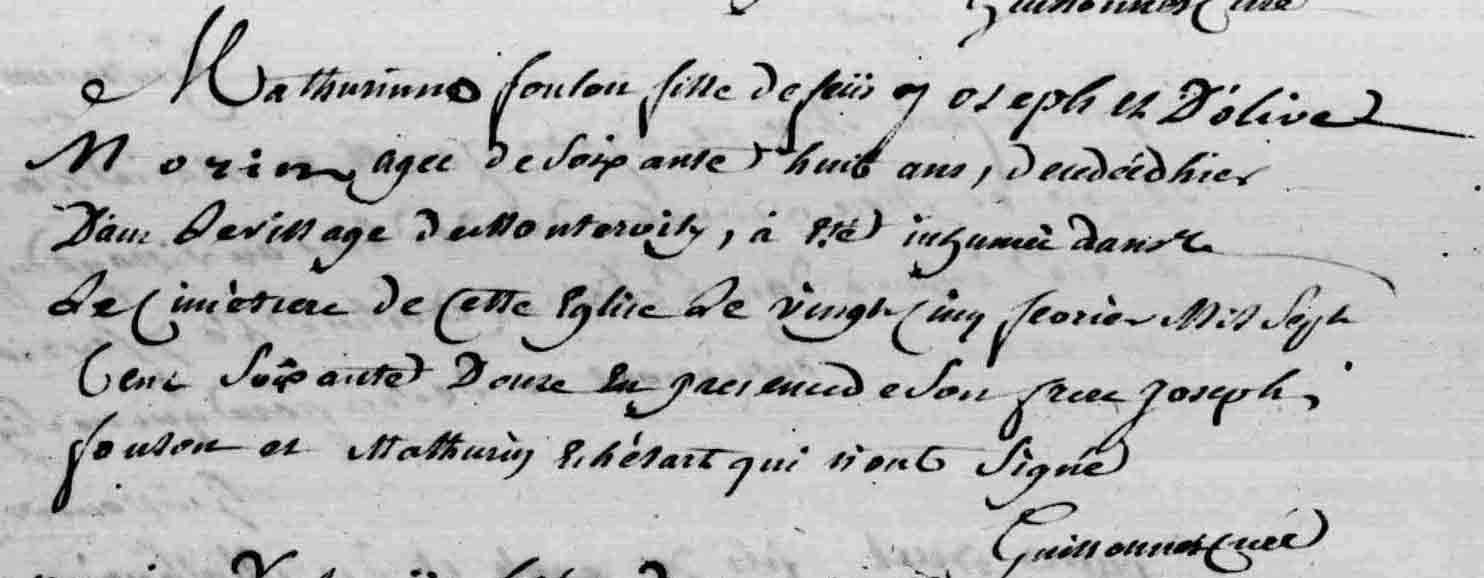 Guillonnet Curé
Mathurinne foulon fille de feüs joseph et D'olive
Morin agee de Soixante huit ans, decedée d'hier
Dans le village de Montervily, à été inhumée dans
Le Cimetiere de Cette Eglise Le vingt Cinq fevrier Mil Sept
Cent Soixante Douze En presence de Son frere joseph
foulon et Mathurin Échélart qui n'ont Signé
Guillonnet Curé